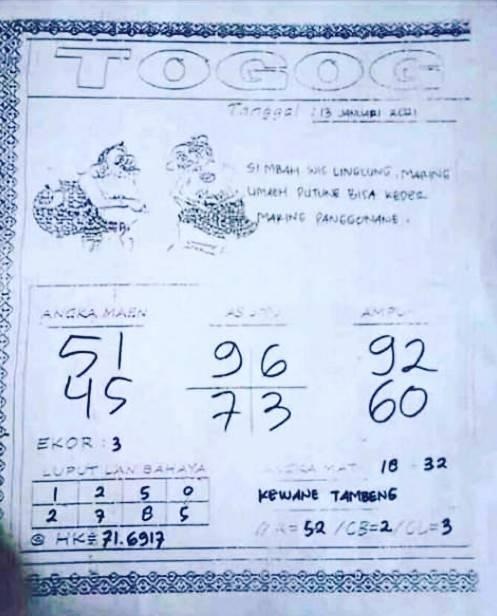 TOGOG
Tanggal : 13 JANUARI 2021
SI MBAH WIS LINGLUNG, MARING
UMAEH PUTUNE BISA KEDER
MARING PANGGONANE.
ANGKA MAEN
51
45
96
73
92
60
EKOR : 3
LUPUT LAN BAHAYA
1 2 5 0
2 7 8 5
HK = 71.6917
ANGKA MATI 18 - 32
KEWANE TAMBENG
= 52 / CB = 2 / CL = 3